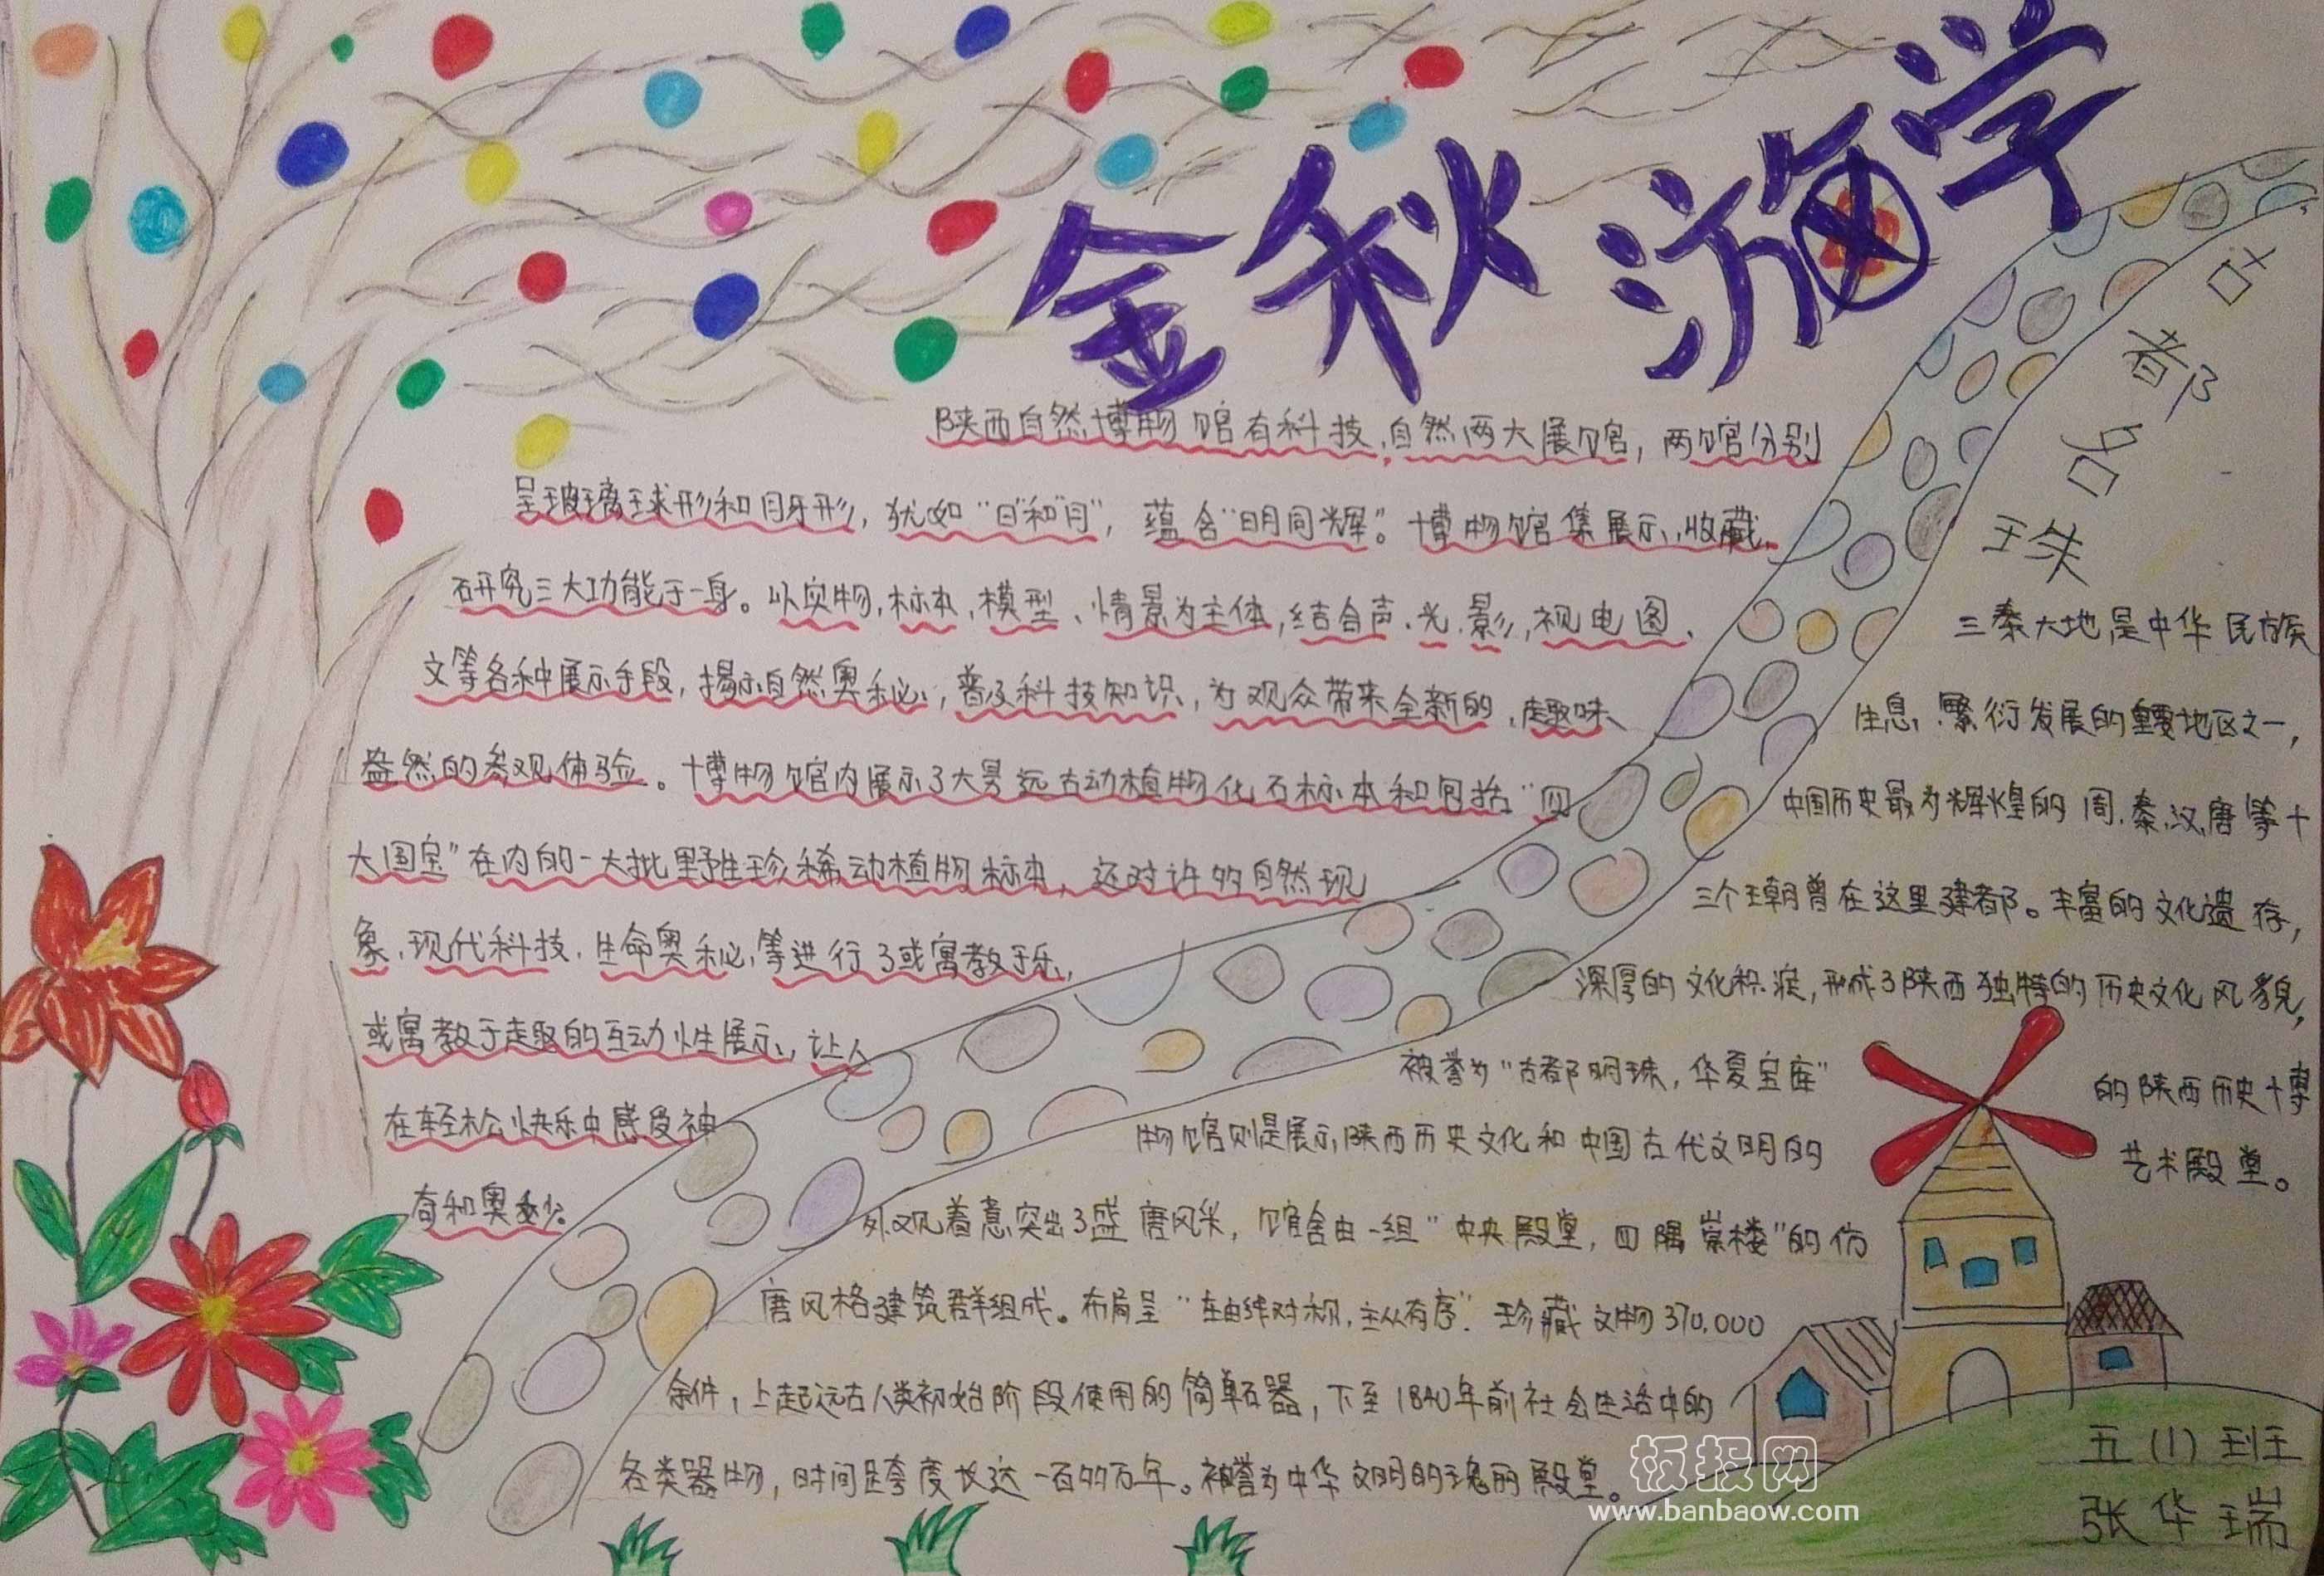 金秋游学
陕西自然博物馆有科技,自然两大展馆,两馆分别
呈玻璃球形和月牙形,犹如“日”和“月”,蕴含“日月同辉”。博物馆集展示、收藏、
研究三大功能于一身。以实物,标本,模型、情景为主体,结合声、光、影,视电图、
文等各种展示手段,揭示自然奥秘,普及科技知识,为观众带来全新的、趣味
盎然的参观体验。博物馆内展示了大量远古动植物化石标本和包括“四
大国宝”在内的一大批野生珍稀动植物标本,还对许多自然现
象、现代科技、生命奥秘,等进行了或寓教于乐,
或寓教于趣的互动性展示,让人
在轻松快乐中感受神
奇和奥秘。
古都名珠
三秦大地,是中华民族
生息、繁衍发展的重要地区之一,
中国历史最为辉煌的周、秦、汉、唐等十
三个王朝曾在这里建都。丰富的文化遗存,
深厚的文化积淀,形成了陕西独特的历史文化风貌,
被誉为“古都明珠,华夏宝库”的陕西历史博
物馆则是展示陕西历史文化和中国古代文明的艺术殿堂。
外观着意突出了盛唐风采,馆舍由一组“中央殿堂,四隅崇楼”的仿
唐风格建筑群组成。布局呈“轴线对称,主从有序”。珍藏文物370,000
余件,上起远古人类初始阶段使用的简单石器,下至1840年前社会生活中的
各类器物,时间跨度长达一百多万年。被誉为中华文明的瑰丽殿堂。
五(1)班王
张华瑞
板报网
www.banbaow.com